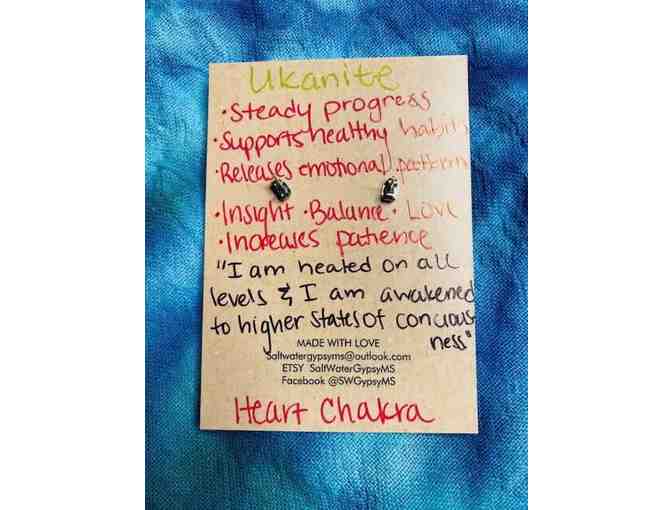 Ukanite
•Steady progress
•Supports healthy habits
•Releases emotional pattern
•Insight •Balance • Love
•Increases patience
"I am healed on all
levels & I am awakened
to higher states of concious
ness"
MADE WITH LOVE
Saltwatergypsyms@outlook.com
ETSY SaltWaterGypsyMS
Facebook @SWGypsyMS
Heart Chakra